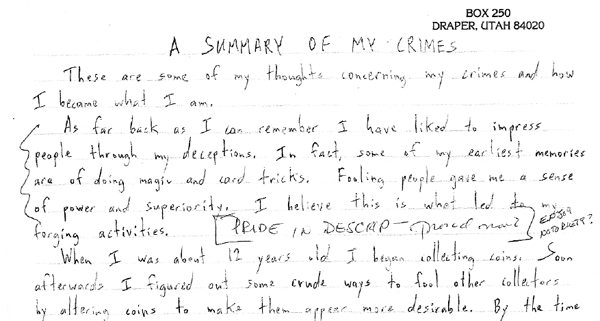 BOX 250
DRAPER, UTAH 84020
A SUMMARY OF MY CRIMES
These are some of my thoughts concerning my crimes and how
I became what I am.
As far back as I can remember I have liked to impress
people through my deceptions. In fact, some of my earliest memories
are of doing magic and card tricks. Fooling people gave me a sense
of power and superiority. I believe this is what led to my
forging activities. [PRIDE IN DESCRIP-
When I was about 12 years old I began collecting coins. Soon
afterwards I figured out some crude ways to fool other collectors
by altering coins to make them appear more desirable. By the time